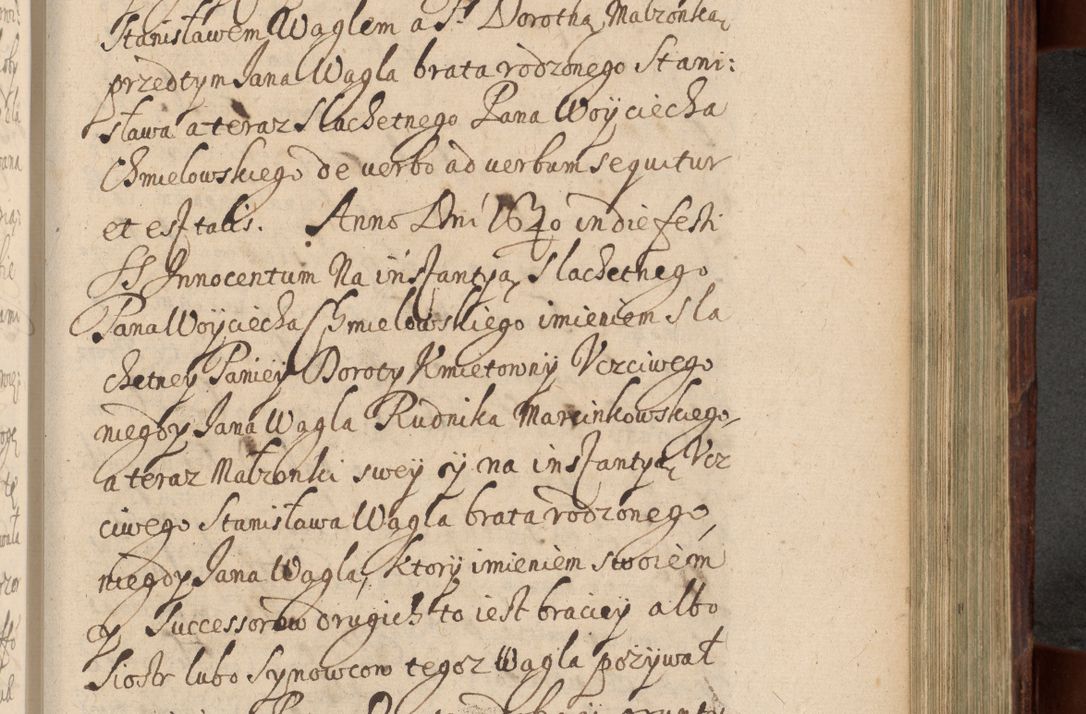 Stanisławem Waglem a Sł. Dorothą Małzonką
przedtym Jana Wagla brata rodzonego Stani:
sława a teraz Slachetnego Pana Woÿciecha
Chmielowskiego de verbo ad verbum sequitur
et est talis. Anno Dni 1640 in die festi
SS Innocentum Na instantyą Slachetnego
Pana Woyciecha Chmielowskiego imieniem Sla
chetney Paniey Doroty Kmietowny Vczciwego
niegdy Jana Wagla Rudnika Marcinkowskiego
a teraz Małzonki swey y na instantyą Vcz
ciwego Stanisława Wagla brata rodzonego
niegdy Jana Wagla, ktory imieniem swoiem
y Successorow drugich to iest braciey albo
Siostr lubo Synowcow tegoz Wagla pozywał